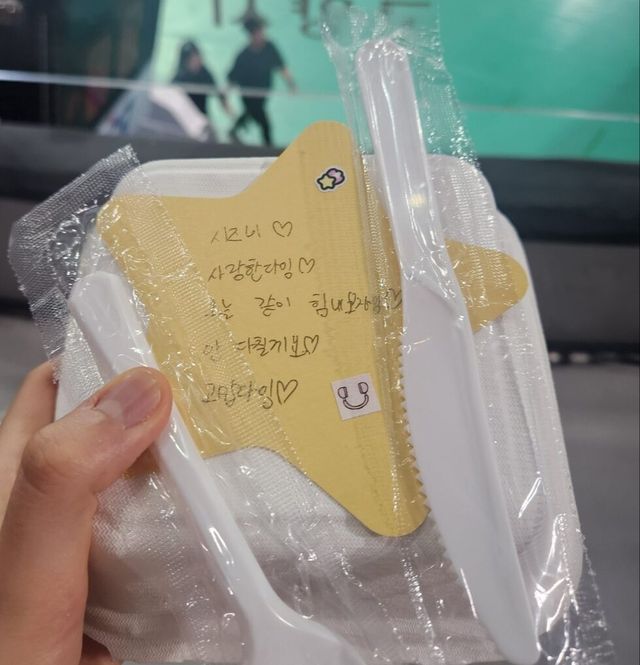 시즈니♡
사랑한다잉♡
오늘 같이 힘내보자잉♡
안 다칠게요♡
고맙다잉♡